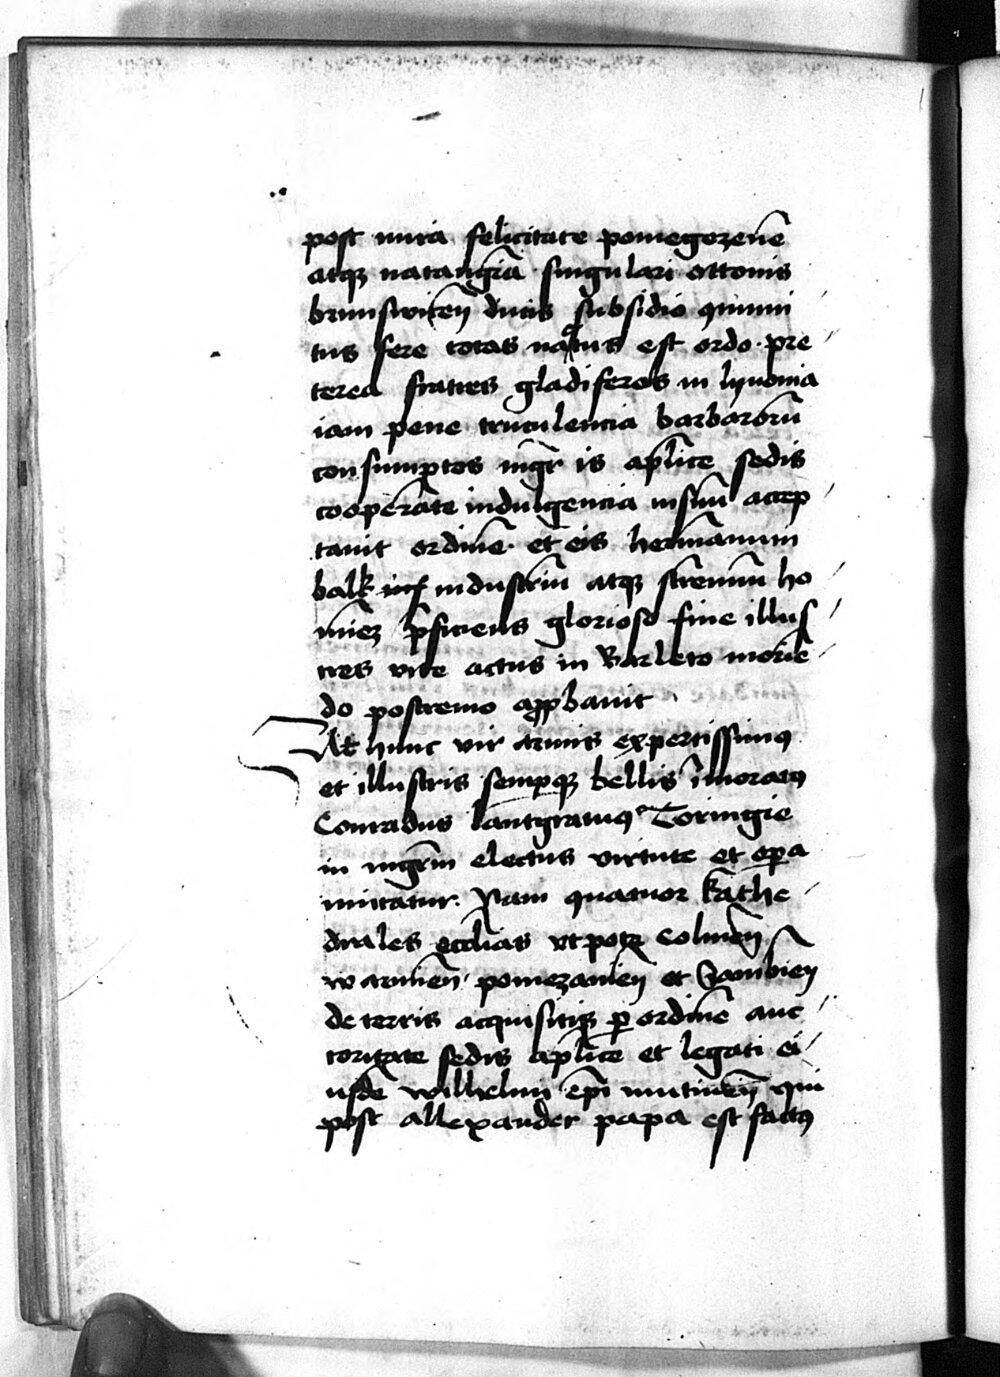 post mira felicitate pomegozenē
atqꝫ natangiā singulari ottonis
brunswiceṅ ducis subsidio quinni
tus fere totas nactus est ordo · pre
terea fratres gladiferos in lyuonia
iam pene truculencia barbarorū
consumptos mgr̄ is aplīce sedis
cooperāte indulgencia in suū accep
tauit ordinē · et eis hermānum
balk industriū atqꝫ strennuū ho
minēꝫ p̄ficiens glorioso fine illus
tres vite actus in Barleto moriē
do postremo approbauit
At hunc vir armis expertissimꝰ
et illustris sempqꝫ bellis īmoratꝰ
Conradus lantgrauiꝰ Toringie
in mgr̄m electus virtute et opera
imitatur · Nam quatuor kathe
drales ecclīas vtpote Colmeṅ
warmieṅ · pomezanieṅ et Sambieṅ
de terris acquisitis per ordinē auc
toritate sedis aplīce et legati ei
usdē wilhelmi ep̄i mutineṅ qui
post allexander papa est factꝰ